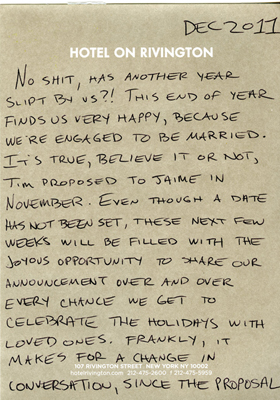 DEC 2011
HOTEL ON RIVINGTON
NO SHIT, HAS ANOTHER YEAR
SLIPT BY US?! THIS END OF YEAR
FINDS US VERY HAPPY, BECAUSE
WE'RE ENGAGED TO BE MARRIED.
IT'S TRUE, BELIEVE IT OR NOT,
TIM PROPOSED TO JAIME IN
NOVEMBER. EVEN THOUGH A DATE
HAS NOT BEEN SET, THESE NEXT FEW
WEEKS WILL BE FILLED WITH THE
JOYOUS OPPORTUNITY TO SHARE OUR
ANNOUNCEMENT OVER AND OVER
EVERY CHANCE WE GET TO
CELEBRATE THE HOLIDAYS WITH
LOVED ONES. FRANKLY, IT
MAKES FOR A CHANGE IN
107 RIVINGTON STREET, NEW YORK NY 10002
hotelrivington.com 212-475-2600 f 212-475-5959
CONVERSATION, SINCE THE PROPOSAL